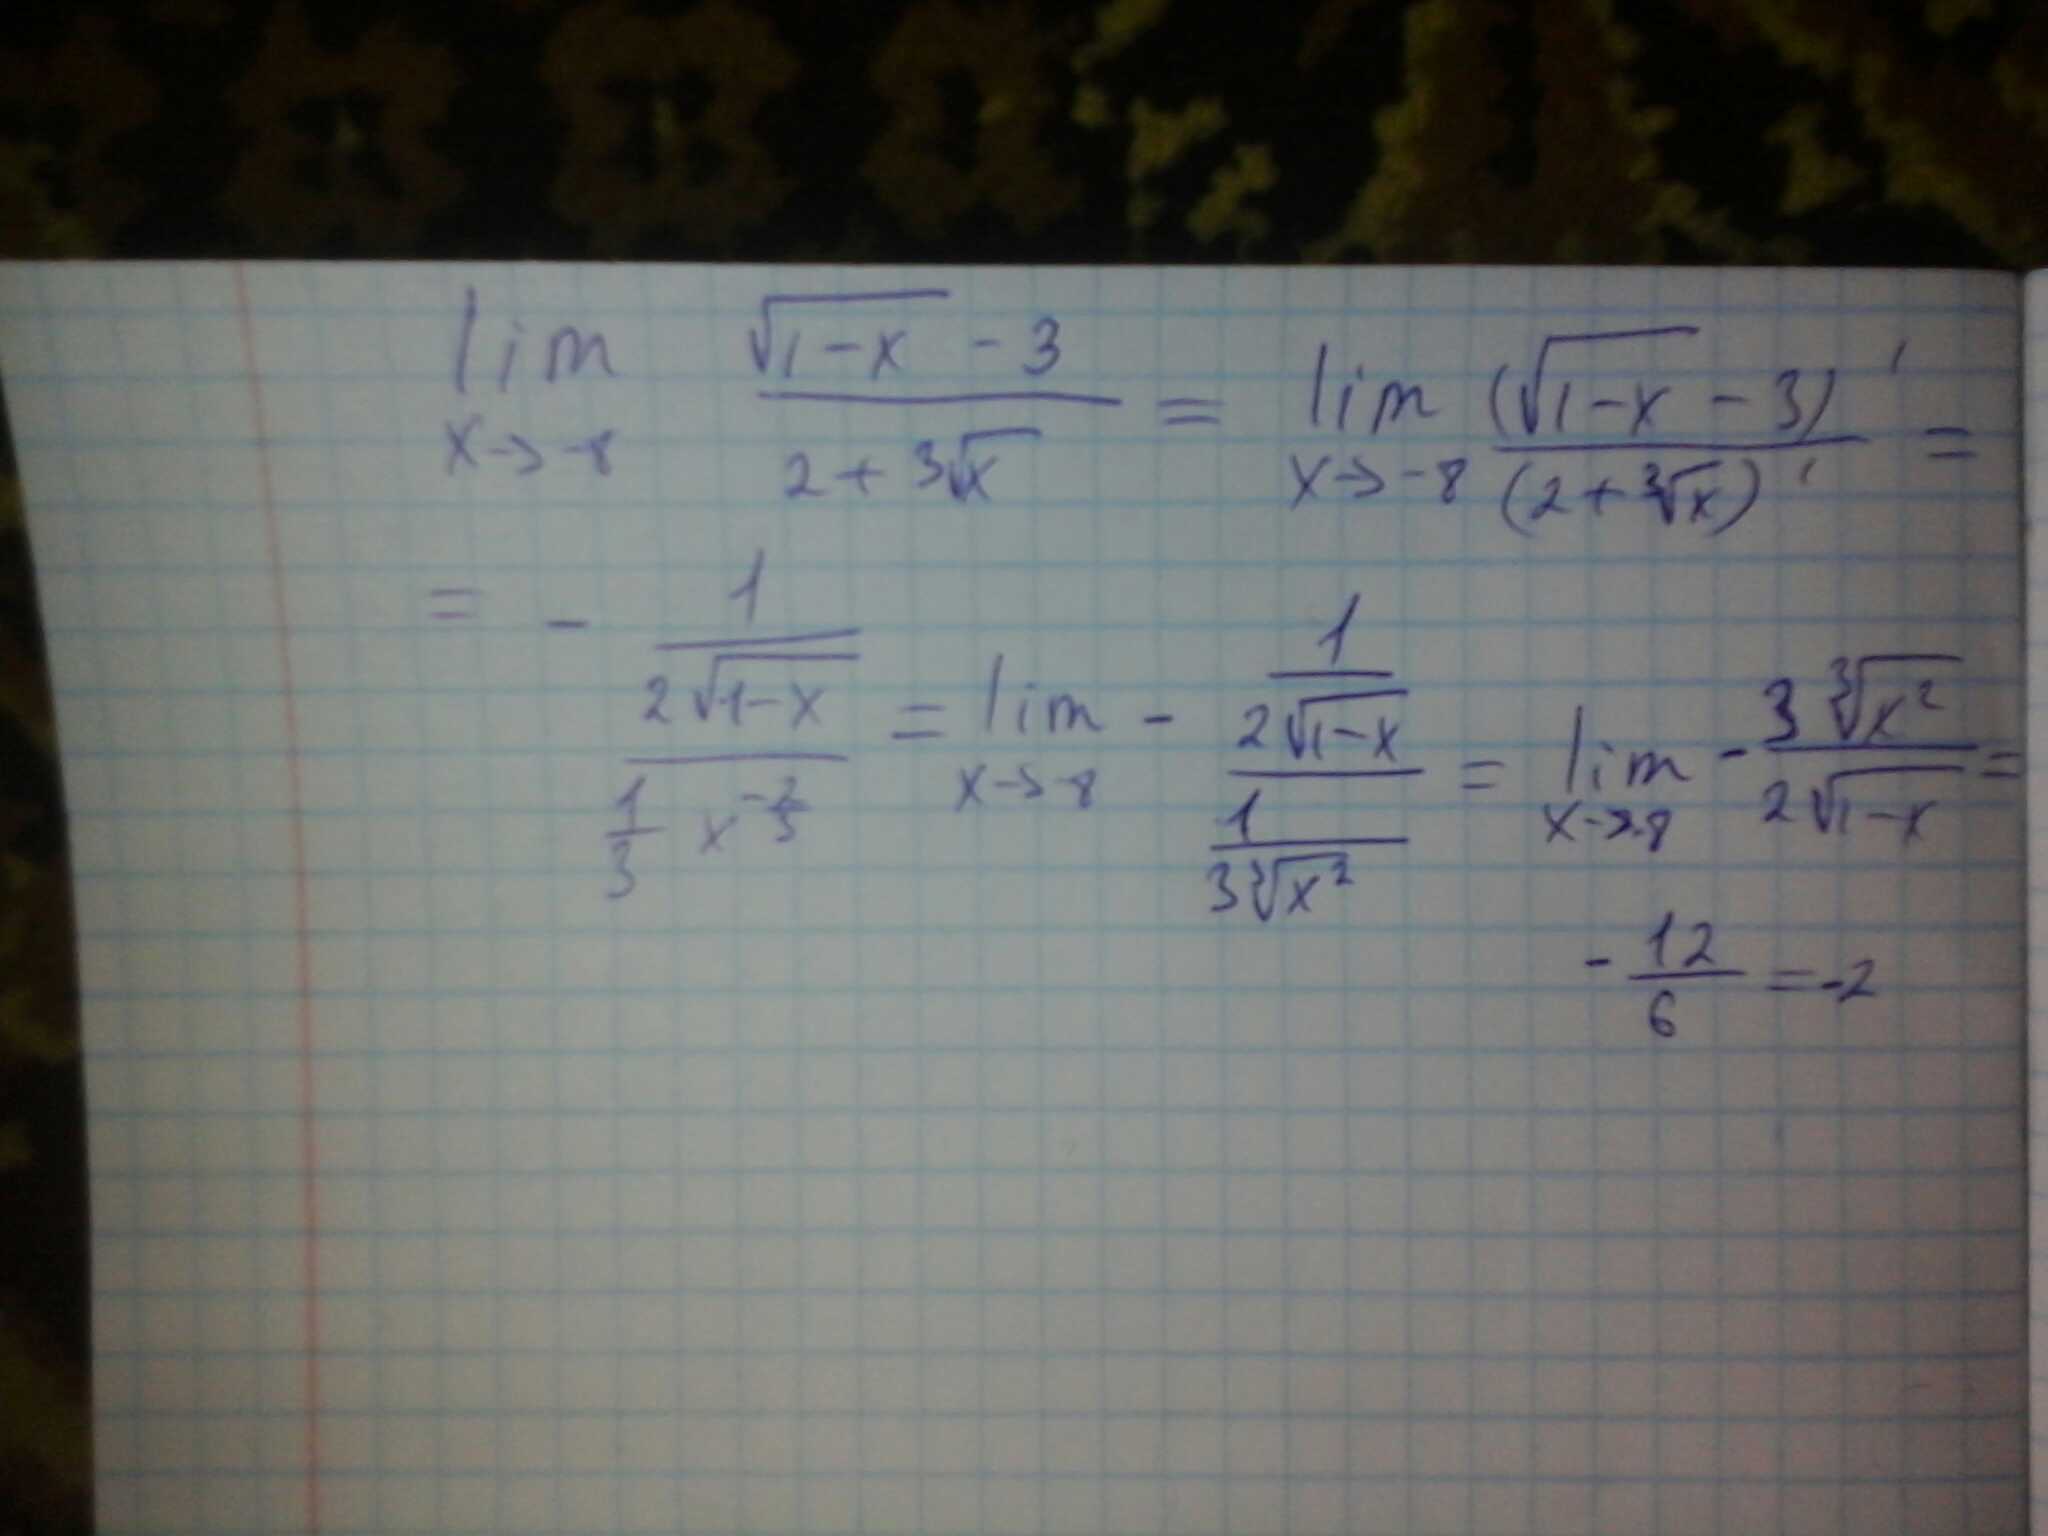 lim x→-8 (√(1-x) - 3)/(2 + ∛x) = lim x→-8 (√(1-x) - 3)'/(2 + ∛x)' =
= - (1/(2√(1-x)))/(1/3 x^(-2/3)) = lim x→-8 - (1/(2√(1-x)))/(1/(3∛(x²))) = lim x→-8 - (3∛(x²))/(2√(1-x)) =
- 12/6 = -2